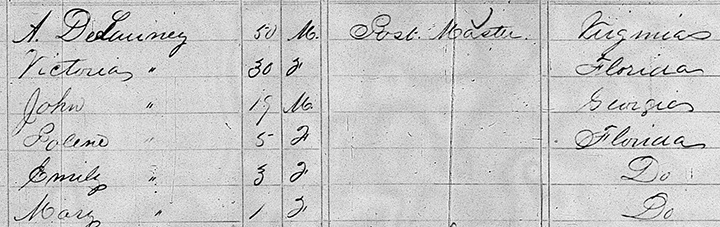 A. DeLauney 50 M. Post Master. Virginia
Victoria " 30 F Florida
John " 19 M Georgia
" 5 F Florida
Emily " 3 F Do
Mary " 1 F Do